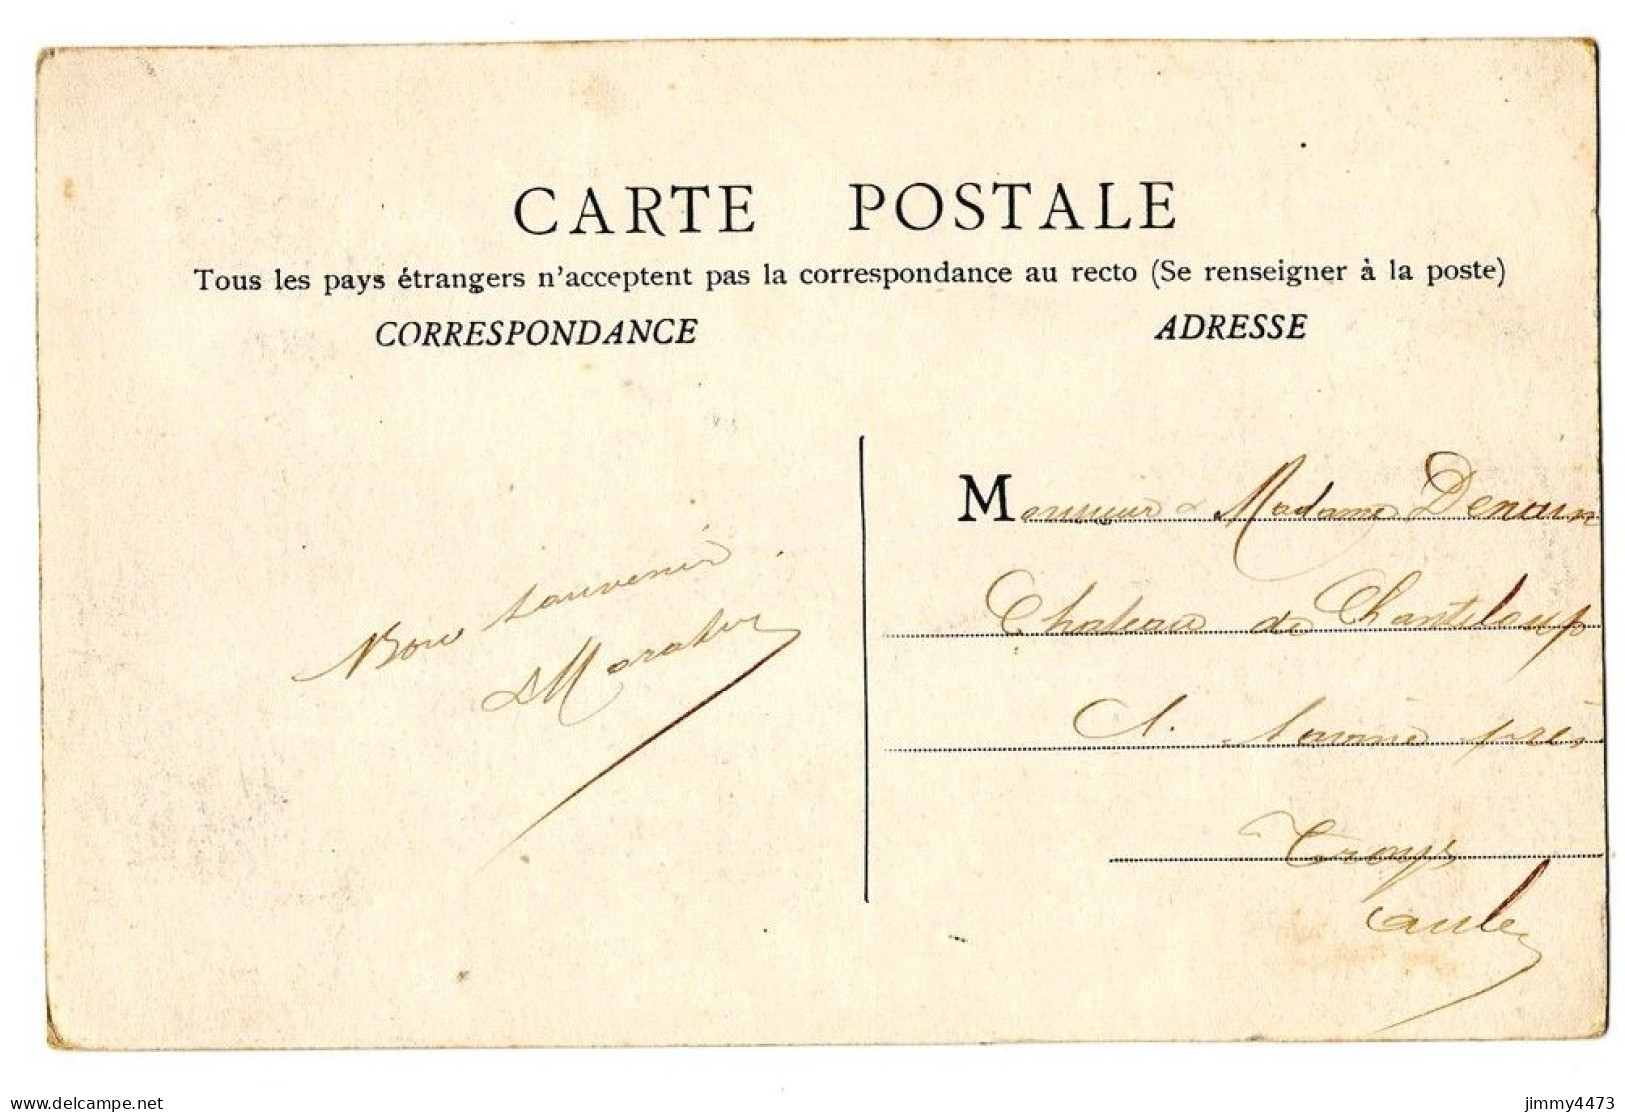 CARTE POSTALE
Tous les pays étrangers n'acceptent pas la correspondance au recto (Se renseigner à la poste)
CORRESPONDANCE
ADRESSE
Bon souvenir
Monsieur & Madame
Chateau de Chanteloup
près
Troyes
Aube
delcampe.net
jimmy4473